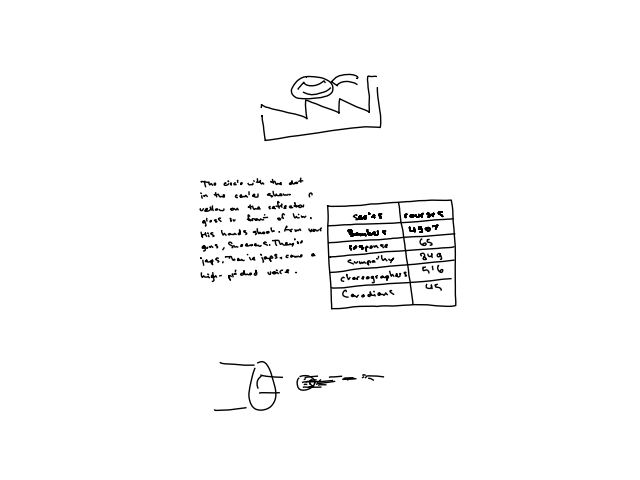 The circle with the dot
in the center shown
yellow on the reflector
glass in front of him.
His hands shook. Arm your
guns, Sweeness. They're
japs. They're japs. came a
high-pitched voice.
series courses
Bombers 4507
response 65
sympathy 849
choreographers 516
Canadians 45